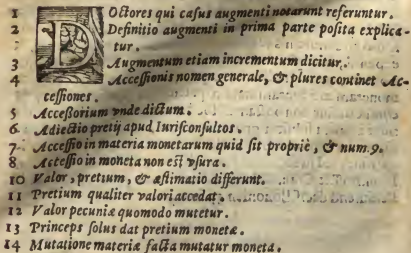 1 DOctores qui casus augmenti notarunt referuntur.
2 Definitio augmenti in prima parte posita explica-
tur.
3 Augmentum etiam incrementum dicitur.
4 Accessionis nomen generale, & plures continet Ac-
cessiones.
5 Accessorium vnde dictum.
6 Adiectio pretij apud Iurisconsultos.
7 Accessio in materia monetarum quid sit propriè, & num. 9.
8 Accessio in moneta non est vsura.
10 Valor, pretium, & æstimatio differunt.
11 Pretium qualiter valori accedat.
12 Valor pecuniæ quomodo mutetur.
13 Princeps solus dat pretium monetæ.
14 Mutatione materiæ facta mutatur moneta.